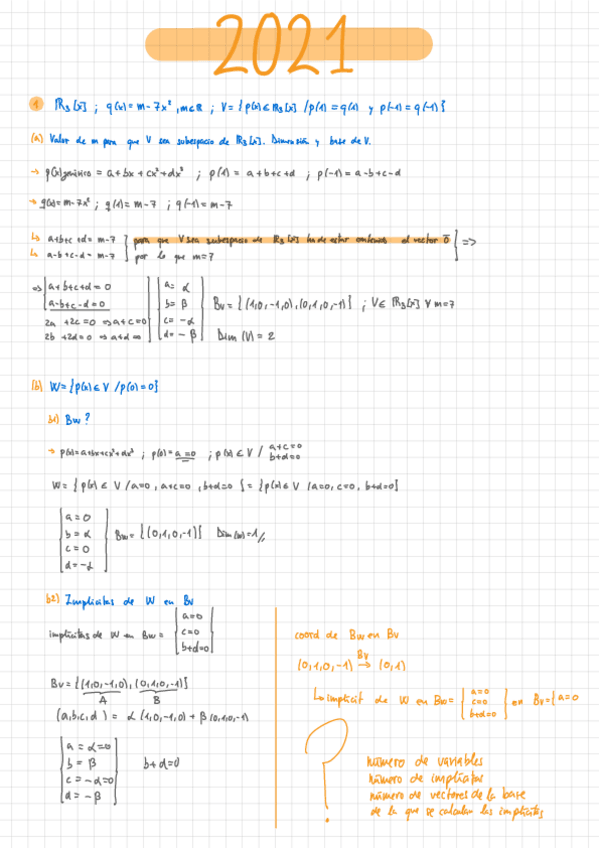 2021
1 ℝ₃[x] ; q(x) = m-7x² , m∈ℝ ; V = {p(x)∈ℝ₃[x] / p(1)=q(1) y p(-1)=q(-1)}
(a) Valor de m para que V sea subespacio de ℝ₃[x]. Dimensión y base de V.
→ p(x)genérico = a+bx+cx²+dx³ ; p(1) = a+b+c+d ; p(-1) = a-b+c-d
→ q(x)=m-7x² ; q(1)=m-7 ; q(-1)=m-7
↳ a+b+c+d=m-7 para que V sea subespacio de ℝ₃[x] ha de estar contenido el vector 0̄ =>
↳ a-b+c-d=m-7 por lo que m=7
=> a+b+c+d=0 a= α
a-b+c-d=0 b= β Bv = {(1,0,-1,0),(0,1,0,-1)} ; V∈ℝ₃[x] ∀ m=7
2a+2c=0 => a+c=0 c= -α
2b+2d=0 => d= -β Dim (V) = 2
(b) W={p(x)∈V / p(0)=0}
b1) Bw?
→ p(x)=a+bx+cx²+dx³ ; p(0)=a=0 ; p(x)∈V / a+c=0
b+d=0
W= {p(x)∈V / a=0, a+c=0, b+d=0} = {p(x)∈V / a=0, c=0, b+d=0}
a=0
b=α Bw= {(0,1,0,-1)} Dim(W)=1
c=0
d=-α
b2) Implícitas de W en Bv
a=0
implícitas de W en Bw = c=0
b+d=0
Bv={(1,0,-1,0),(0,1,0,-1)}
A B
(a,b,c,d) = α(1,0,-1,0) + β(0,1,0,-1)
a=α=0
b=β b+d=0
c=-α=0
d=-β
coord de Bw en Bv
Bv
(0,1,0,-1) → (0,1)
a=0
↳ implicit de W en = c=0 en Bv={a=0
b+d=0
?
número de variables
número de implícitas
número de vectores de la base
de la que se calculan las implícitas